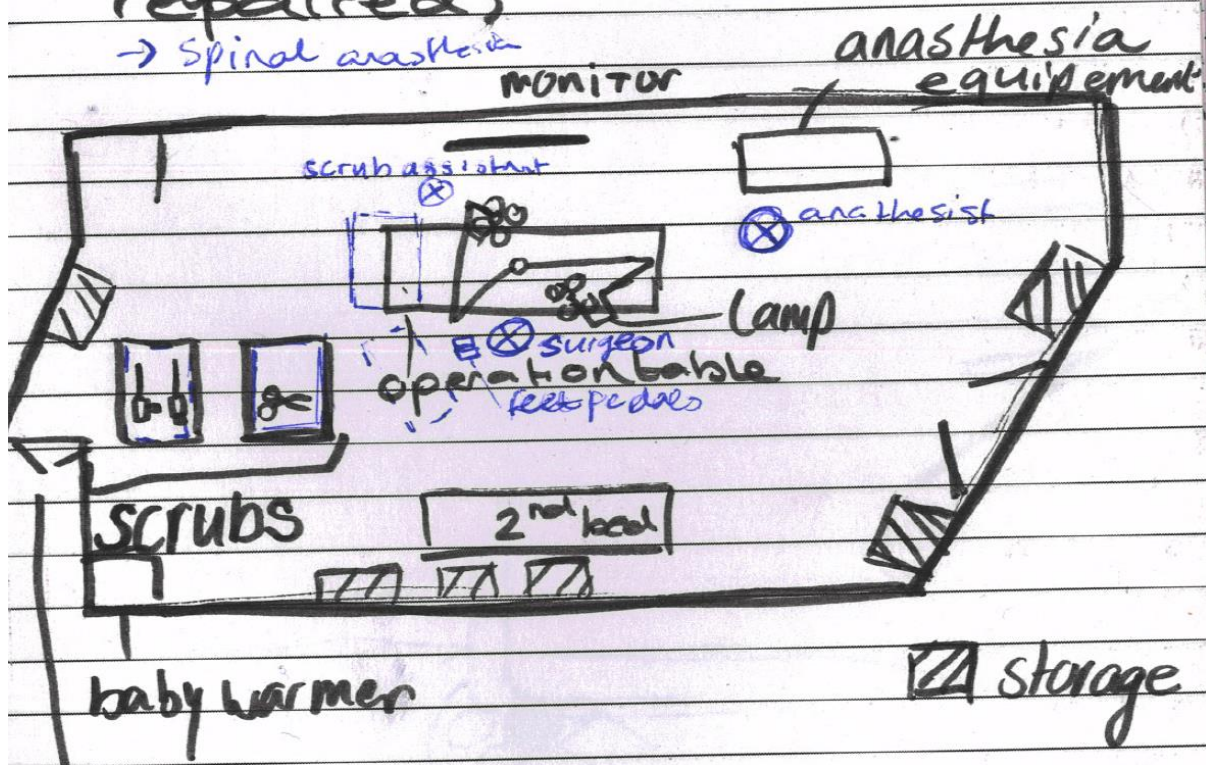 repaired,
→ Spinal anasthesia
anasthesia
equipement
monitor
scrub assistant
anathesist
lamp
surgeon
operation table
feet pedals
scrubs
2nd bed
baby warmer
storage